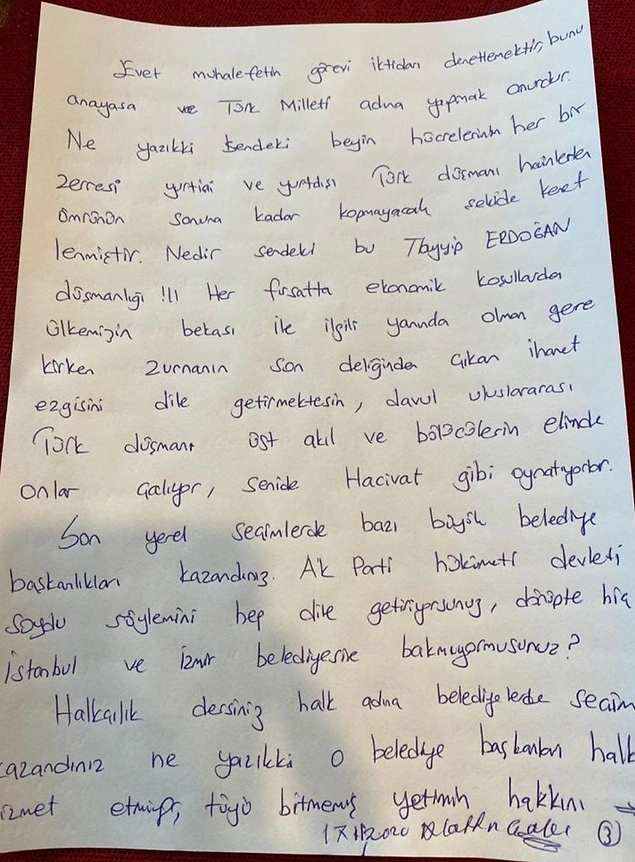 Evet muhalefetin görevi iktidarı denetlemektir, bunu
anayasa ve Türk Milleti adına yapmak onurdur.
Ne yazıkki sendeki beyin hücrelerinin her bir
zerresi yurtiçi ve yurtdışı Türk düşmanı hainlerden
ömrünün sonuna kadar kopmayacak şekide kenet
lenmiştir. Nedir sendeki bu Tayyip ERDOĞAN
düşmanlığı !!! Her fırsatta ekonomik koşullarda
ülkemizin bekası ile ilgili yanında olman gere
kirken zurnanın son deliğinden çıkan ihanet
ezgisini dile getirmektesin, davul uluslararası
Türk düşmanı üst akıl ve bölücülerin elinde
onlar çalıyor, senide Hacivat gibi oynatıyorlar.
Son yerel seçimlerde bazı büyük belediye
başkanlıkları kazandınız. AK Parti hükümeti devleti
soydu söylemini hep dile getiriyorsunuz, dönüpte hiç
İstanbul ve İzmir belediyesine bakmıyormusunuz?
Halkçılık dersiniz halk adına belediyelerde seçim
kazandınız ne yazıkki o belediye başkanları halka
izmet etmiyor, tüyü bitmemiş yetimin hakkını →
2020 ③